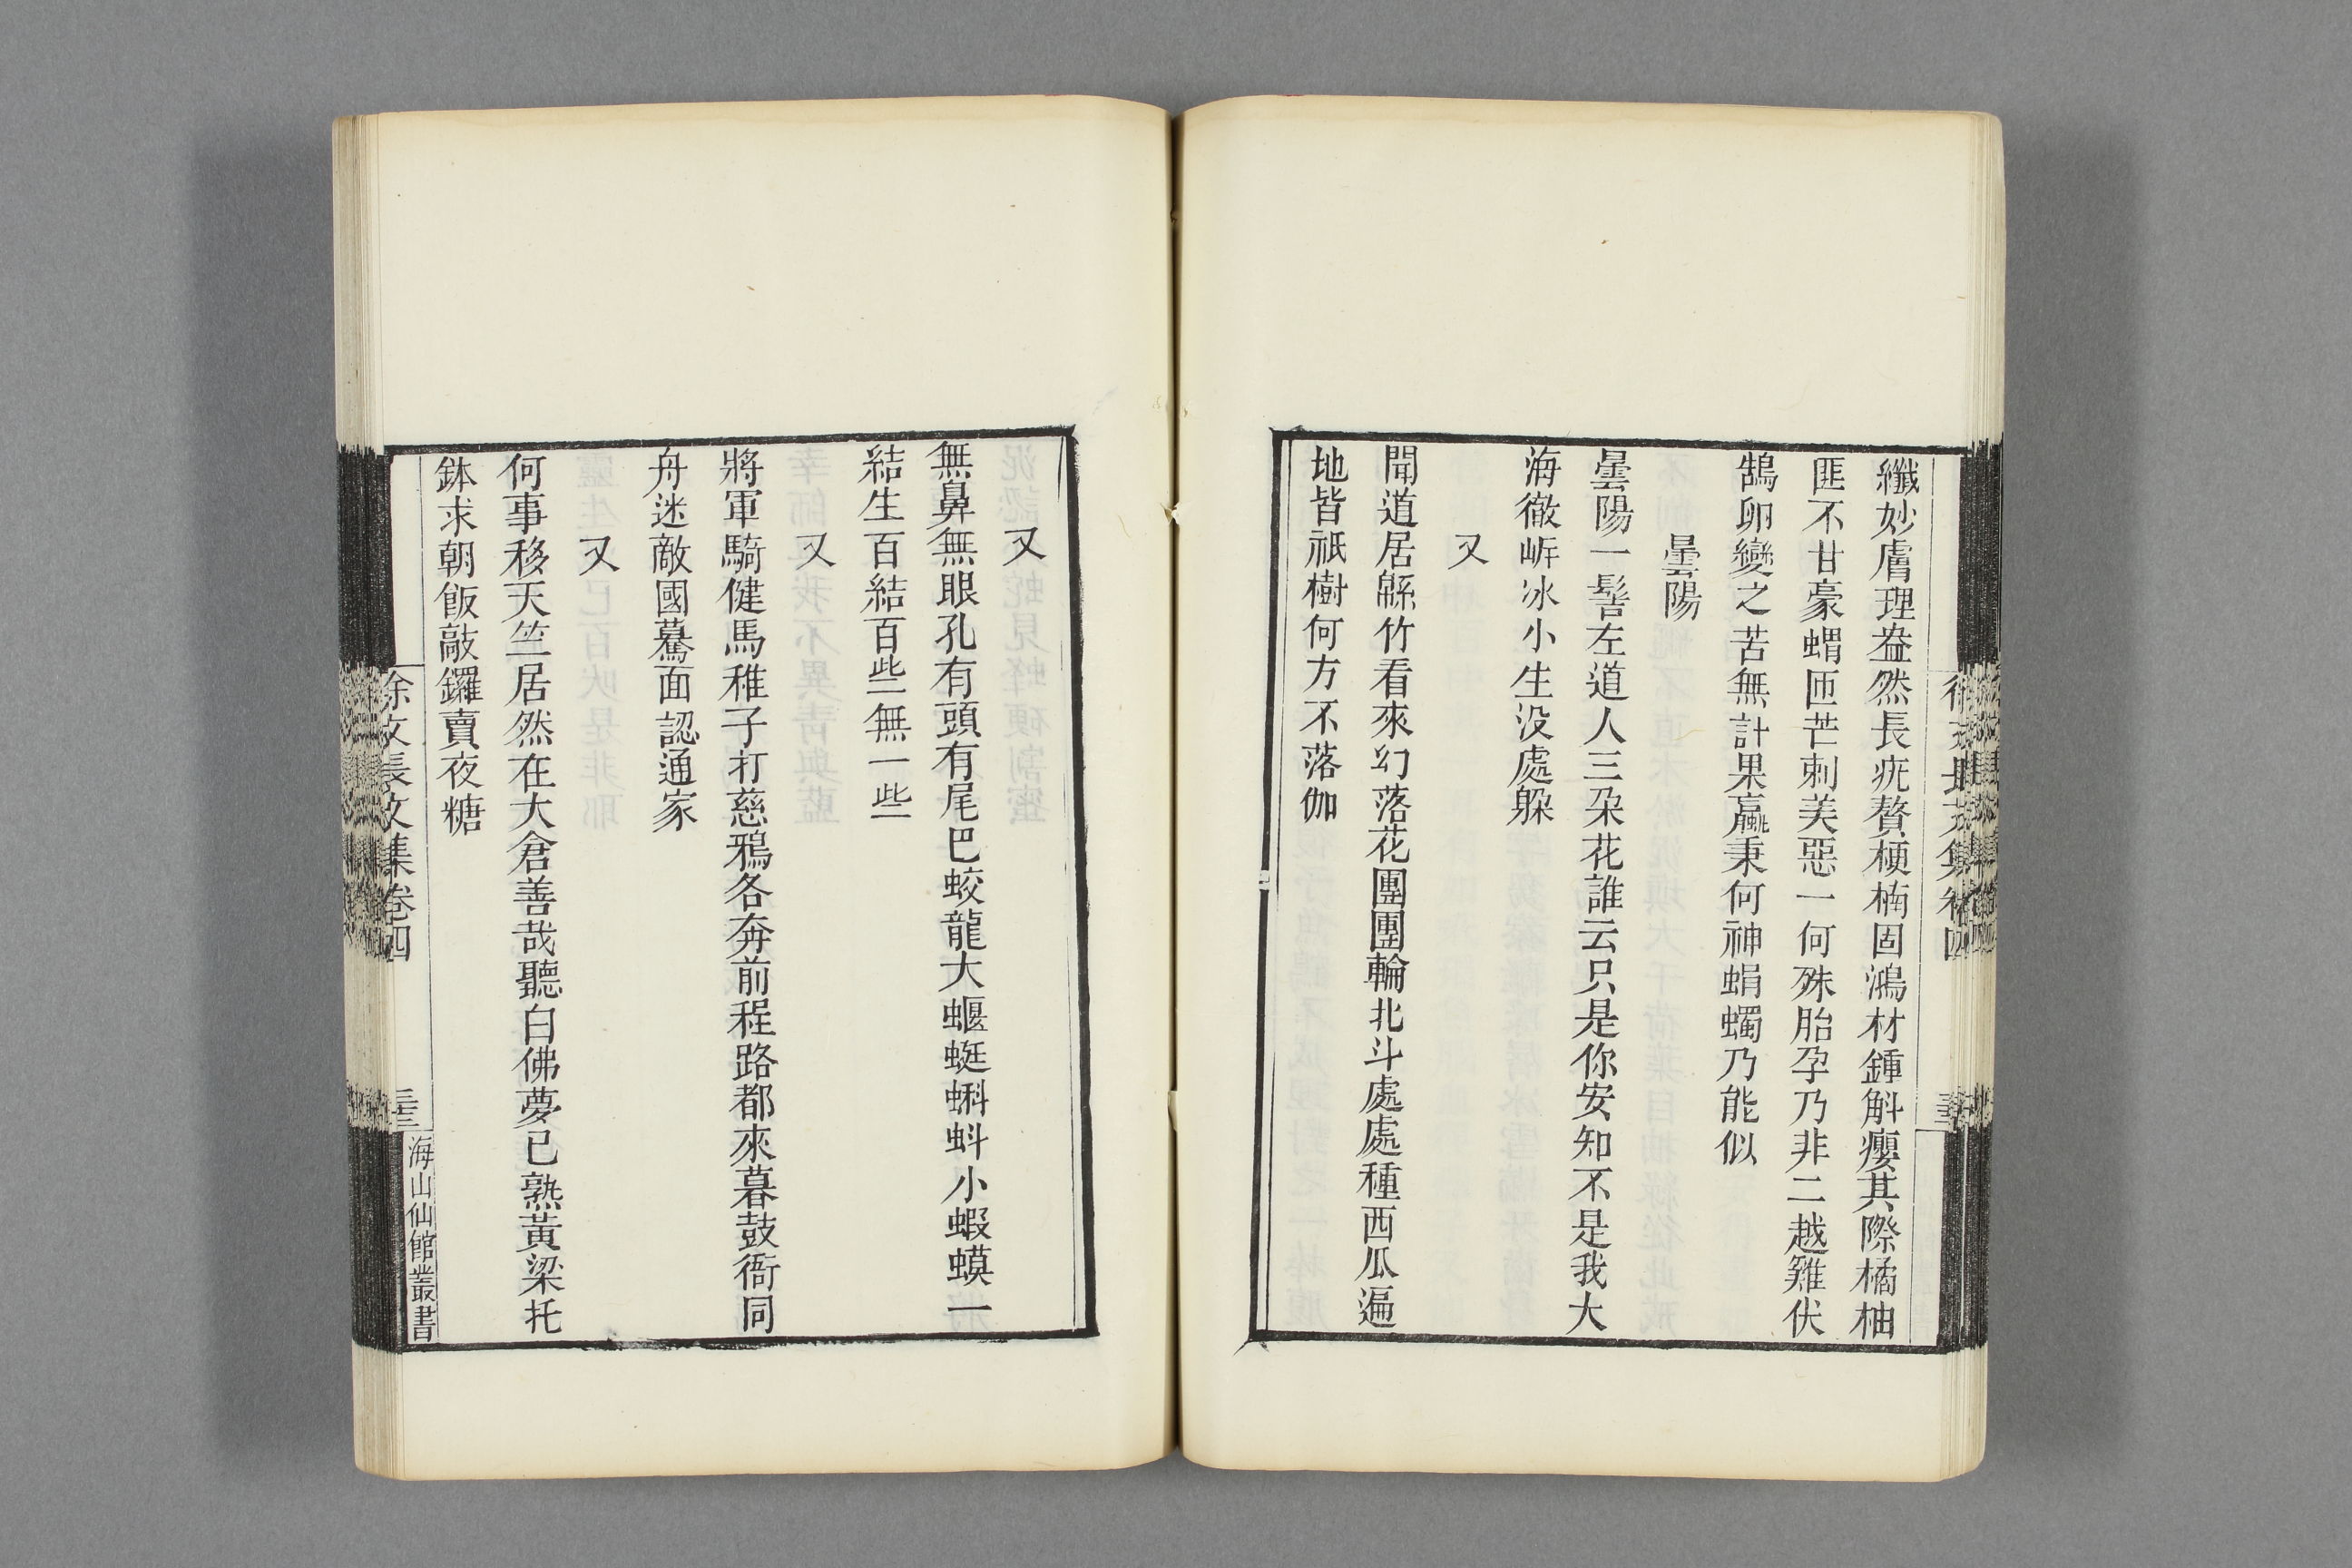 纖妙膚理盎然長疣贅梗楠固鴻材鍾斛癭其際橘柚
匪不甘豪蝟匝芒刺美惡一何殊胎孕乃非二越雞伏
鵠卵變之苦無計果蠃秉何神蜎蠋乃能似
曇陽
曇陽一髻左道人三朶花誰云只是你安知不是我大
海徹㟁冰小生没處躱
又
聞道居緜竹看來幻落花團團輪北斗處處種西瓜遍
地皆祇樹何方不落伽
又
無鼻無眼孔有頭有尾巴蛟龍大蝘蜓蝌蚪小蝦蟆一
結生百結百些無一些
又
將軍騎健馬稚子打慈鴉各奔前程路都來暮鼓衙同
舟迷敵國驀面認通家
又
何事移天竺居然在大倉善哉聽白佛夢已熟黃粱托
鉢求朝飯敲鑼賣夜糖
徐文長文集卷四
三十三
海山仙館叢書